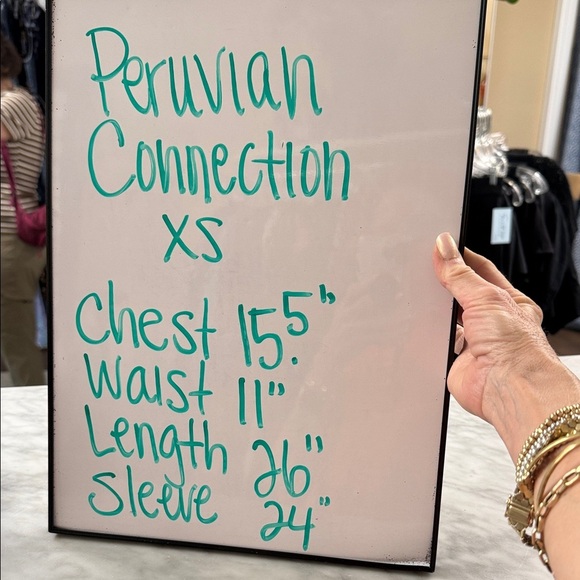 Peruvian
Connection
XS
Chest 15.5"
Waist 11"
Length 26"
Sleeve 24"